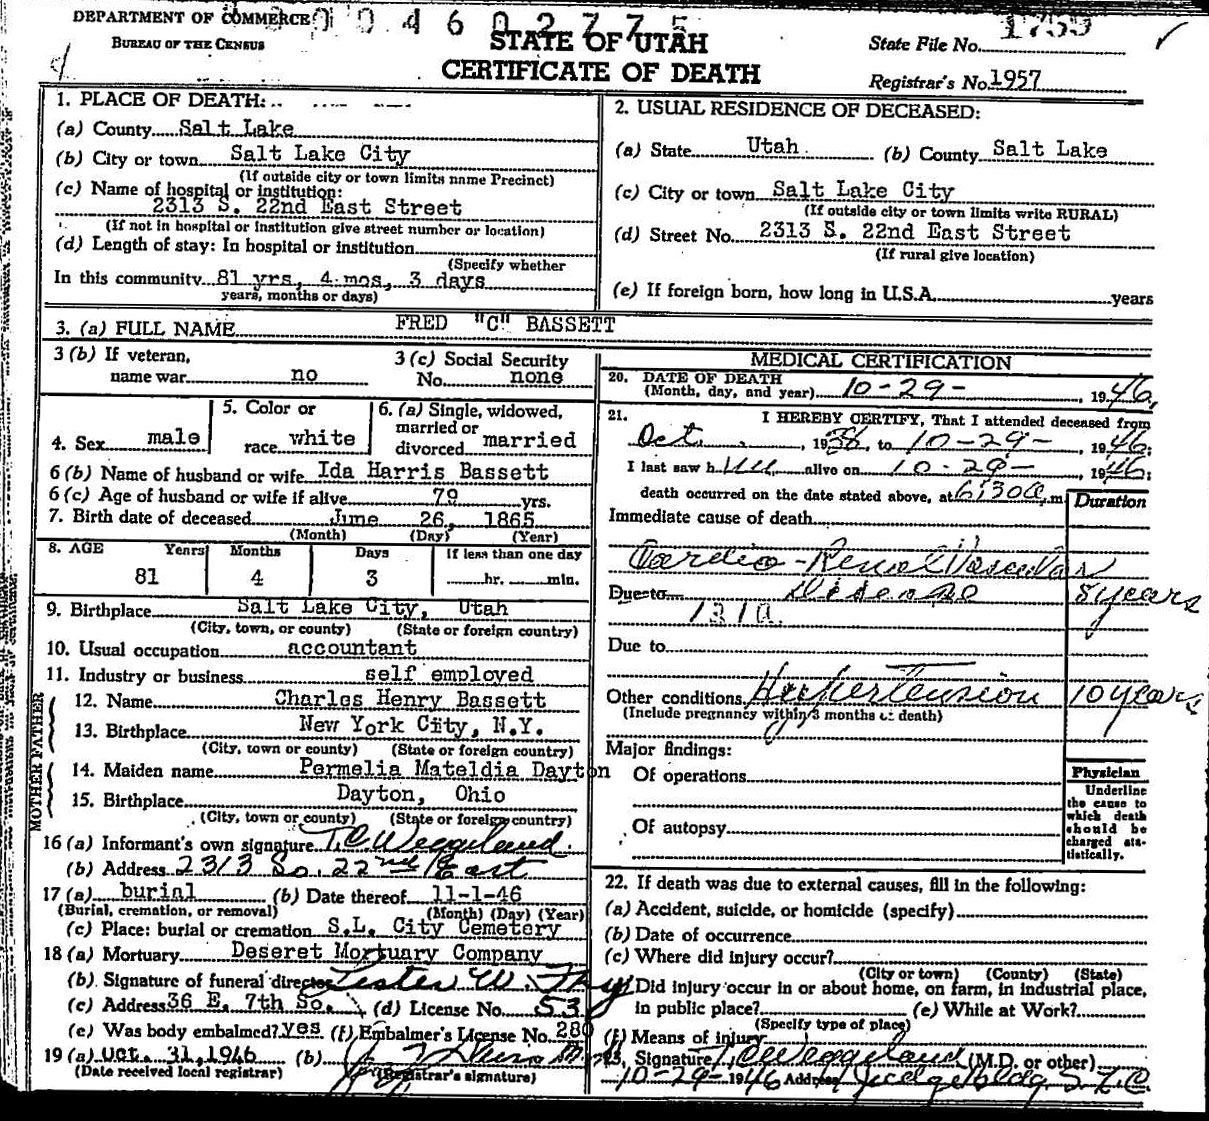 DEPARTMENT OF COMMERCE
BUREAU OF THE CENSUS
0 4 6 0 2 7 7 5
STATE OF UTAH
CERTIFICATE OF DEATH
State File No. 1759
Registrar's No. 1957
1. PLACE OF DEATH:
(a) County Salt Lake
(b) City or town Salt Lake City
(If outside city or town limits name Precinct)
(c) Name of hospital or institution:
2313 S. 22nd East Street
(If not in hospital or institution give street number or location)
(d) Length of stay: In hospital or institution
(Specify whether
In this community 81 yrs, 4 mos, 3 days
years, months or days)
2. USUAL RESIDENCE OF DECEASED:
(a) State Utah (b) County Salt Lake
(c) City or town Salt Lake City
(If outside city or town limits write RURAL)
(d) Street No. 2313 S. 22nd East Street
(If rural give location)
(e) If foreign born, how long in U.S.A. years
3. (a) FULL NAME FRED "C" BASSETT
3 (b) If veteran,
name war no
3 (c) Social Security
No. none
4. Sex male
5. Color or
race white
6. (a) Single, widowed,
married or
divorced married
6 (b) Name of husband or wife Ida Harris Bassett
6 (c) Age of husband or wife if alive 79 yrs.
7. Birth date of deceased June 26, 1865
(Month) (Day) (Year)
8. AGE Years Months Days If less than one day
81 4 3 hr. min.
9. Birthplace Salt Lake City, Utah
(City, town, or county) (State or foreign country)
10. Usual occupation accountant
11. Industry or business self employed
MOTHER FATHER
12. Name Charles Henry Bassett
13. Birthplace New York City, N.Y.
(City, town or county) (State or foreign country)
14. Maiden name Permelia Mateldia Dayton
15. Birthplace Dayton, Ohio
(City, town or county) (State or foreign country)
16 (a) Informant's own signature T.C. Weggeland
(b) Address 2313 So. 22nd East
17 (a) burial (b) Date thereof 11-1-46
(Burial, cremation, or removal) (Month) (Day) (Year)
(c) Place: burial or cremation S.L. City Cemetery
18 (a) Mortuary Deseret Mortuary Company
(b) Signature of funeral director Lester W.
(c) Address 36 E. 7th So. (d) License No. 53
(e) Was body embalmed? yes (f) Embalmer's License No. 280
19 (a) Oct. 31, 1946 (b)
(Date received local registrar) (Registrar's signature)
MEDICAL CERTIFICATION
20. DATE OF DEATH
(Month, day, and year) 10-29-, 1946.
21. I HEREBY CERTIFY, That I attended deceased from
Oct., 1936, to 10-29-, 1946;
I last saw him alive on 10-29-, 1946;
death occurred on the date stated above, at 6:30 a m.
Duration
Immediate cause of death
Cardio-Renal Vascular
Due to Disease 8 years
131a.
Due to
Other conditions Hypertension 10 years
(Include pregnancy within 3 months of death)
Major findings:
Of operations
Of autopsy
Physician
Underline
the cause to
which death
should be
charged sta-
tistically.
22. If death was due to external causes, fill in the following:
(a) Accident, suicide, or homicide (specify)
(b) Date of occurrence
(c) Where did injury occur?
(City or town) (County) (State)
Did injury occur in or about home, on farm, in industrial place,
in public place? (e) While at Work?
(Specify type of place)
(f) Means of injury
23. Signature T.C. Weggeland (M.D. or other)
10-29-1946 Address Judge bldg S.L.C.